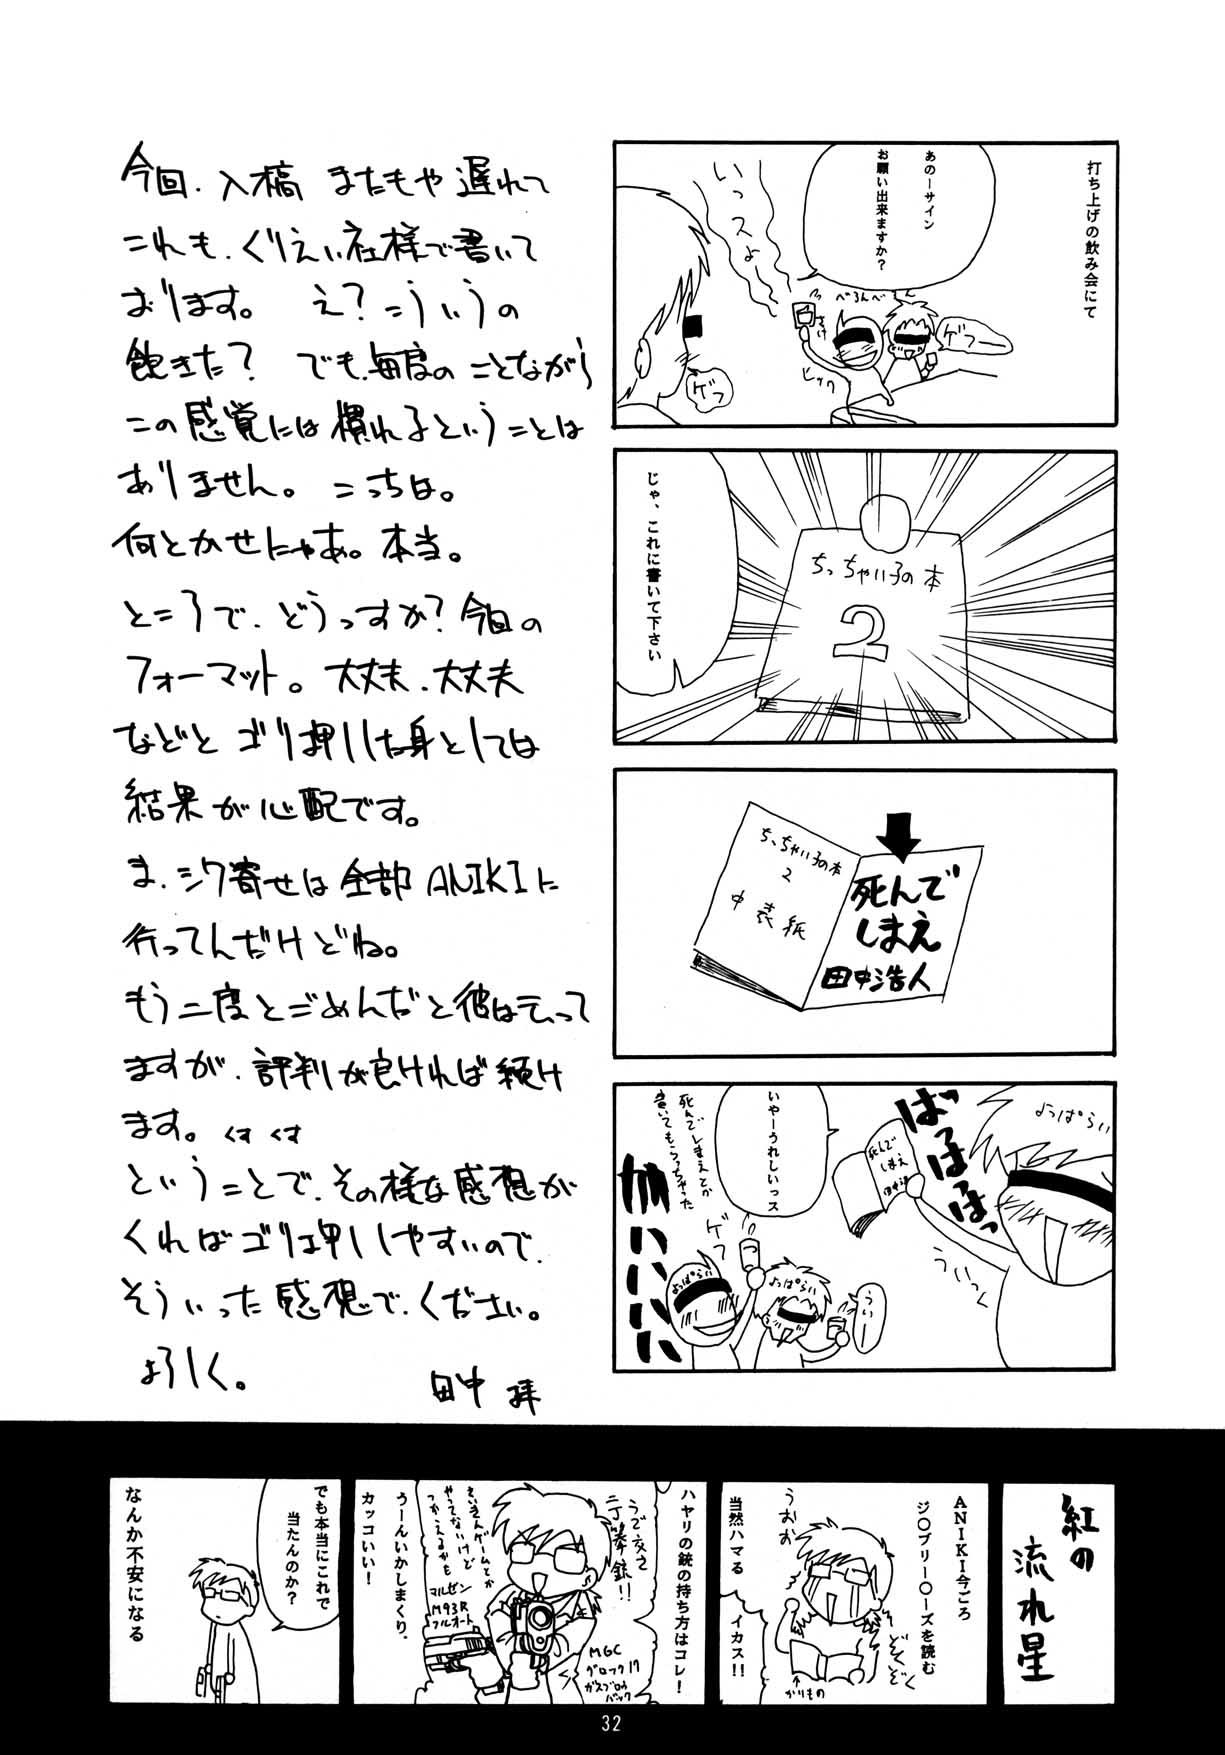 今回、入稿 またもや遅れて
これも、くりえい社様で書いて
おります。 え？こういうの
飽きた？ でも、毎度のことながら
この感覚には慣れるということは
ありません。 こっちは。
何とかせにゃあ。本当。
ところで、どうっすか？今回の
フォーマット。大丈夫、大丈夫
などとゴリ押しした身としては
結果が心配です。
ま、シワ寄せは全部ANIKIに
行ってんだけどね。
もう二度とごめんだと彼は言って
ますが、評判が良ければ続け
ます。くす くす
ということで、その様な感想が
くればゴリ押ししやすいので、
そういった感想で、ください。
よろしく。
田中 拝
打ち上げの飲み会にて
あのーサイン
お願い出来ますか？
いっスよ
べろんべろん
さけ
ゲフー
ゲフ
ヒック
じゃ、これに書いて下さい
ちっちゃい子の本
2
ちっちゃい子の本
2
中表紙
死んで
しまえ
田中浩人
よっぱらい
ばっはっはっはっ
死んで
しまえ
田中浩人
ういっく
いやーうれしいっス
死んでしまえとか
書いてもらっちゃった
ゲフ
よっぱらい
よっぱらい
ういー
紅の
流れ星
ANIKI今ごろ
ジ○ブリー○ーズを読む
うおお
ぞくぞくぞく
かりもの
当然ハマる
イカス！！
ハヤリの銃の持ち方はコレ！
うで交さ
二丁拳銃！！
さいきんゲームとか
やってないけど
つかえるかも
マルゼン
M93R
フルオート
MGC
グロック17
ガスブロー
バック
うーんいかしまくり、
カッコいい！
でも本当にこれで
当たんのか？
なんか不安になる
32